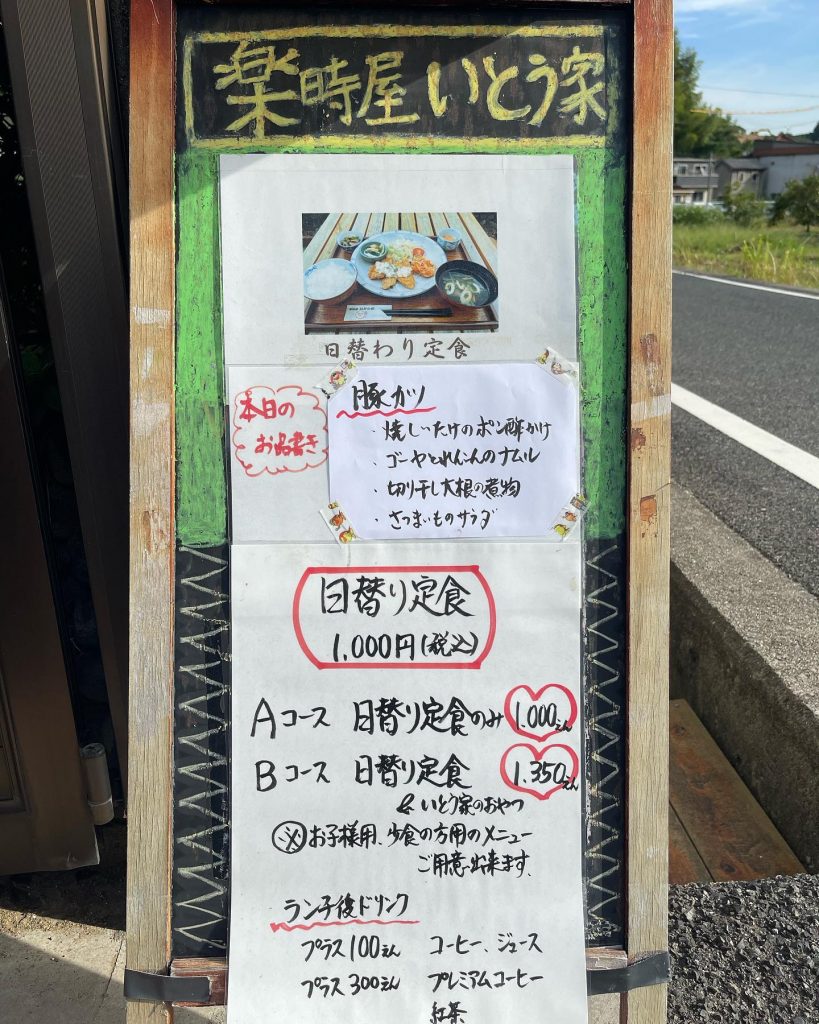 楽時屋 いとう家
日替わり定食
本日の
お品書き
豚カツ
・焼しいたけのポン酢かけ
・ゴーヤとれんこんのナムル
・切り干し大根の煮物
・さつまいものサラダ
日替り定食
1,000円(税込)
Aコース 日替り定食のみ 1.000えん
Bコース 日替り定食 1.350えん
& いとう家のおやつ
※お子様用、少食の方用のメニュー
ご用意出来ます。
ランチ後ドリンク
プラス100えん コーヒー、ジュース
プラス300えん プレミアムコーヒー
紅茶